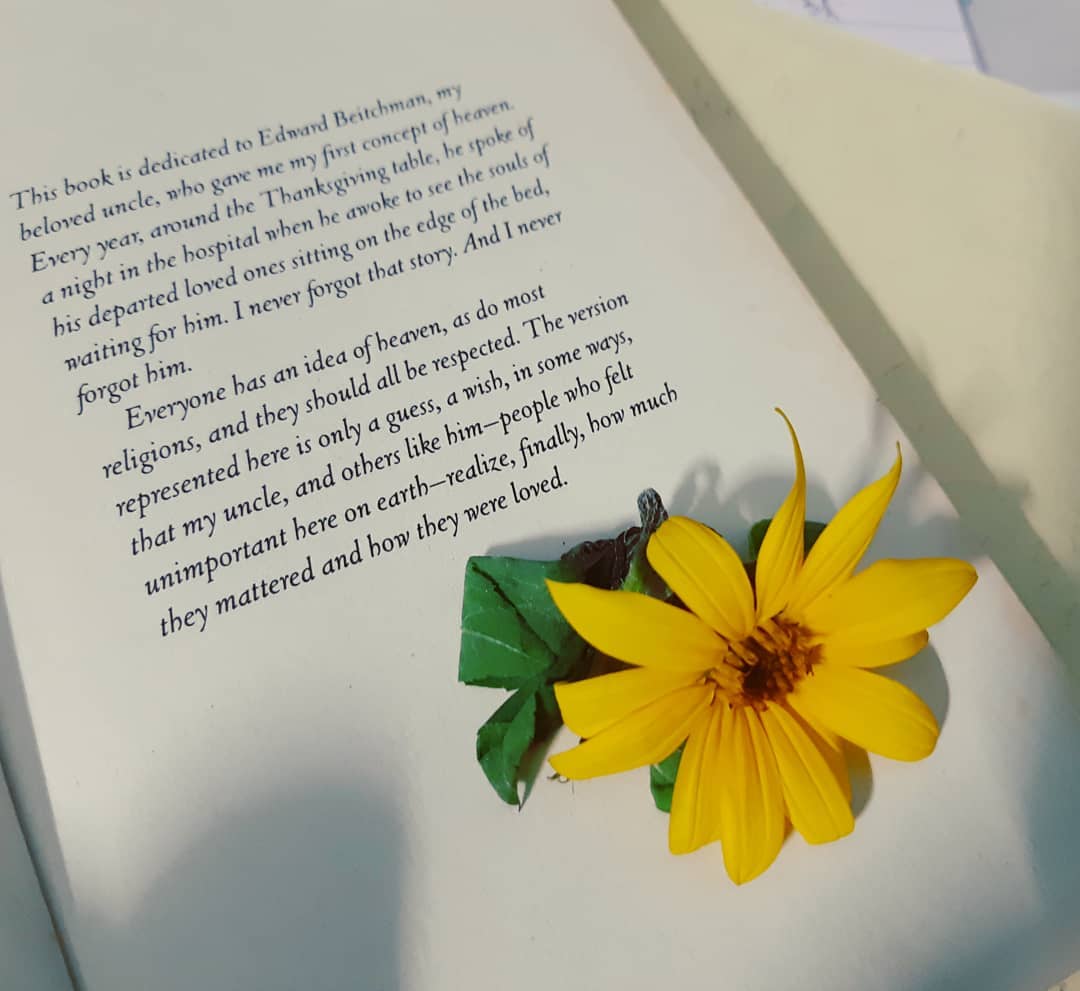 This book is dedicated to Edward Beitchman, my
beloved uncle, who gave me my first concept of heaven.
Every year, around the Thanksgiving table, he spoke of
a night in the hospital when he awoke to see the souls of
his departed loved ones sitting on the edge of the bed,
waiting for him. I never forgot that story. And I never
forgot him.
Everyone has an idea of heaven, as do most
religions, and they should all be respected. The version
represented here is only a guess, a wish, in some ways,
that my uncle, and others like him—people who felt
unimportant here on earth—realize, finally, how much
they mattered and how they were loved.